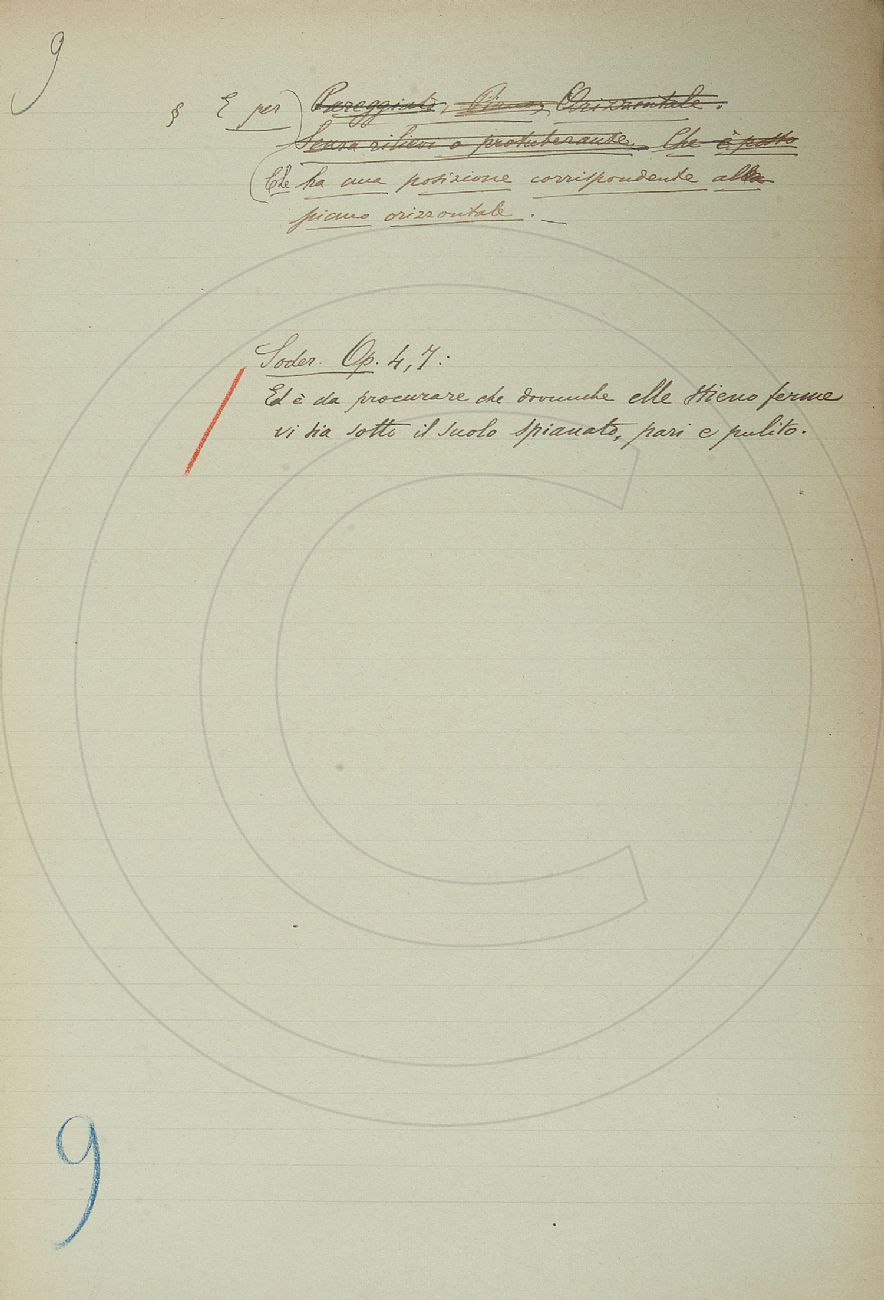 9
§ E per Pareggiato, Piano, Orizzontale.
Senza rilievi o protuberanze. Che è posto
Che ha una posizione corrispondente al
piano orizzontale. —
Soder. Op. 4, 7:
Ed è da procurare che dovunche elle stieno ferme
vi sia sotto il suolo spianato, pari e pulito.
9